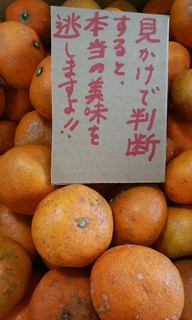 見かけで判断
すると、
本当の美味を
逃しますよ!!